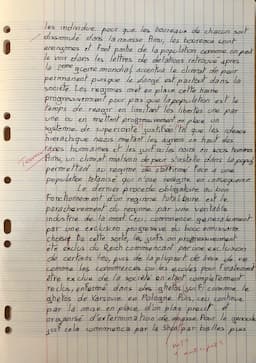 les individus pour que les bourreaux de chacun soit
dissimulé dans la masse. Ainsi, les bourreaux sont
anonymes et font partie de la population comme on peut
le voir dans les lettres de délations retrouvé après
la 2nde guerre mondial accentue le climat de peur
permanent puisque le danger est partout dans la
société. Les régimes met en place cette haine
progressivement pour pas que la population est le
temps de réagir en limitant les libertés une par
une ou en mettant progressivement en place un
système de supériorité justifié tel que les idées
hiérarchique nazis mettant les aryens en haut des
races humaines et les juifs ou les noirs en sous hommes
Ainsi, un climat malsain de peur s'installe dans la population
permettant au régime de s'affirmer face à une
population tétanisé qui n'ose réagir en conséquence.
Le dernier procédé obligatoire au bon
fonctionnement d'un régime totalitaire est le
parachèvement du régime par une véritable
industrie de la mort. Ceci commence généralement
par une exclusion progressive du bouc émissaire
choisi. De cette sorte, les juifs on progressivement
été exclus du Reich commençant par une exclusion
de certains lieu, puis de la plupart de lieux de vie
comme les commerces ou les écoles pour finalement
être exclus de la société en étant complètement
reclus, enfermé dans des ghetos juif comme le
ghetos de Varsovie en Pologne. Puis, ceci continue
par la mise en place d'un plan précis et
organisé d'extermination de masse. Pour le génocide
juif cela commença par la shoa par balles plus